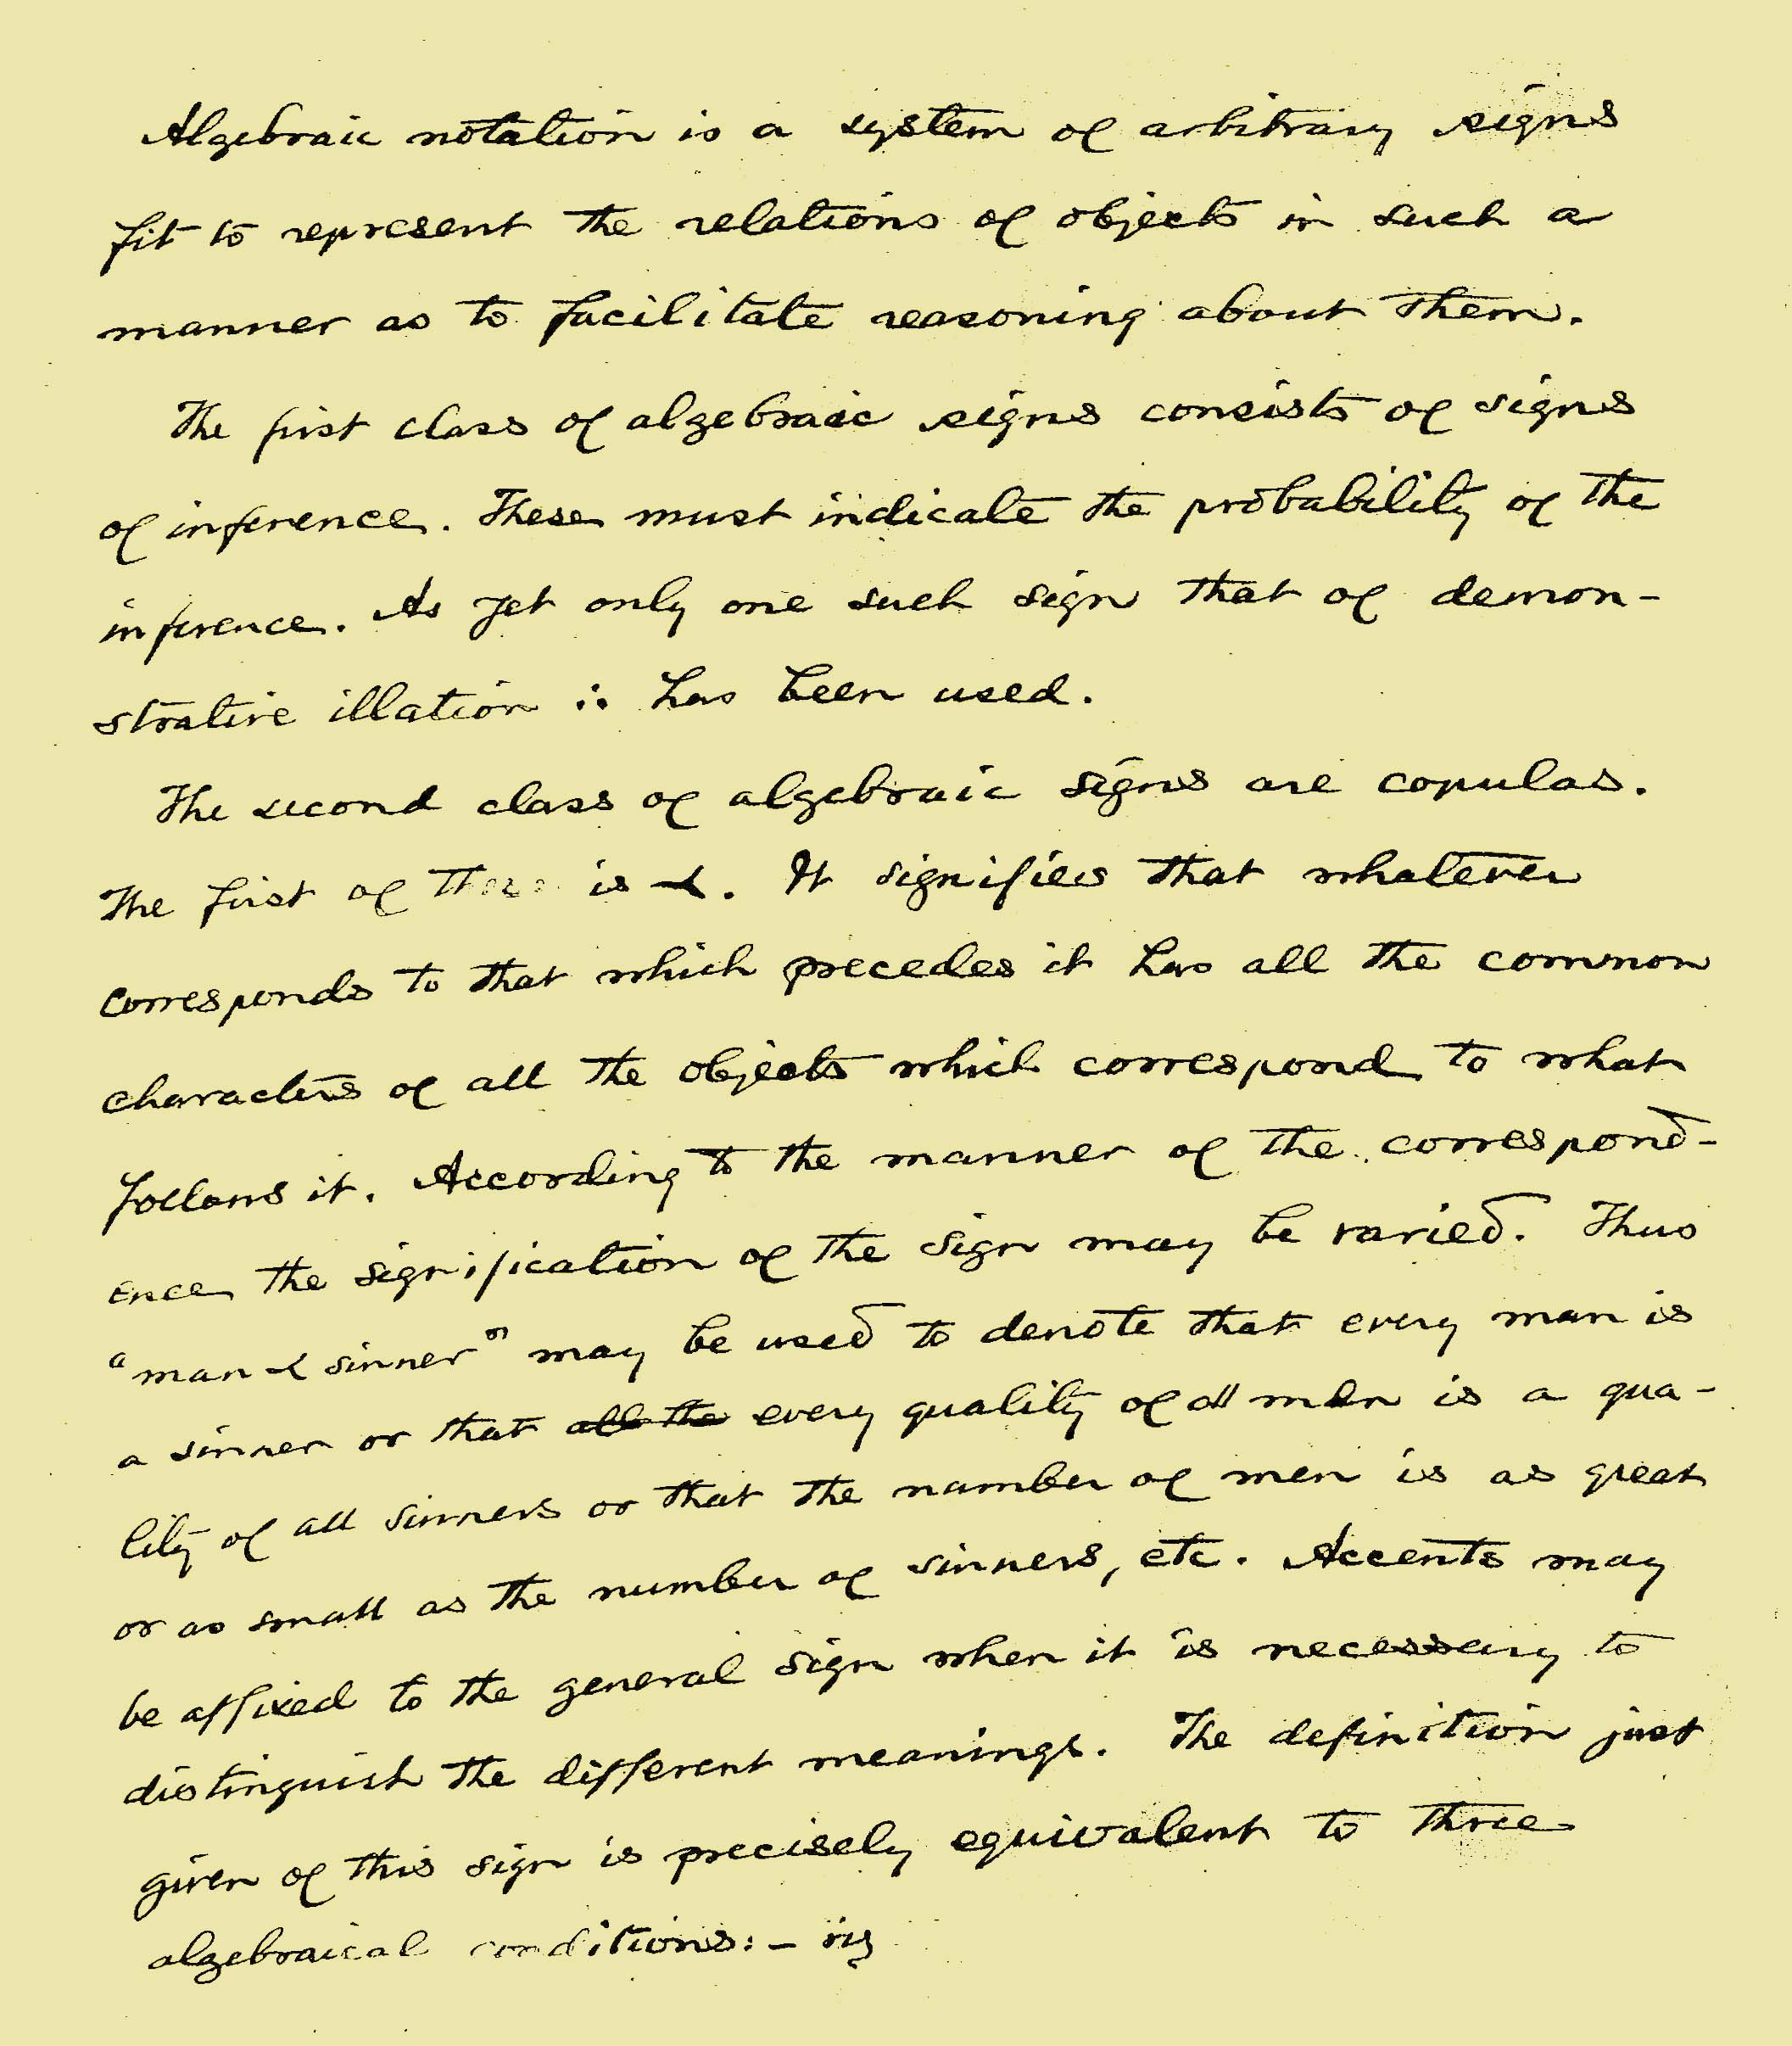 Algebraic notation is a system of arbitrary signs
fit to represent the relations of objects in such a
manner as to facilitate reasoning about them.
The first class of algebraic signs consists of signs
of inference. These must indicate the probability of the
inference. As yet only one such sign that of demon-
strative illation ∴ has been used.
The second class of algebraic signs are copulas.
The first of these is ⤙. It signifies that whatever
corresponds to that which precedes it has all the common
characters of all the objects which correspond to what
follows it. According to the manner of the correspond-
ence the signification of the sign may be varied. Thus
"man ⤙ sinner" may be used to denote that every man is
a sinner or that all the every quality of all men is a qua-
lity of all sinners or that the number of men is as great
or as small as the number of sinners, etc. Accents may
be affixed to the general sign when it is necessary to
distinguish the different meanings. The definition just
given of this sign is precisely equivalent to three
algebraical conditions:– viz